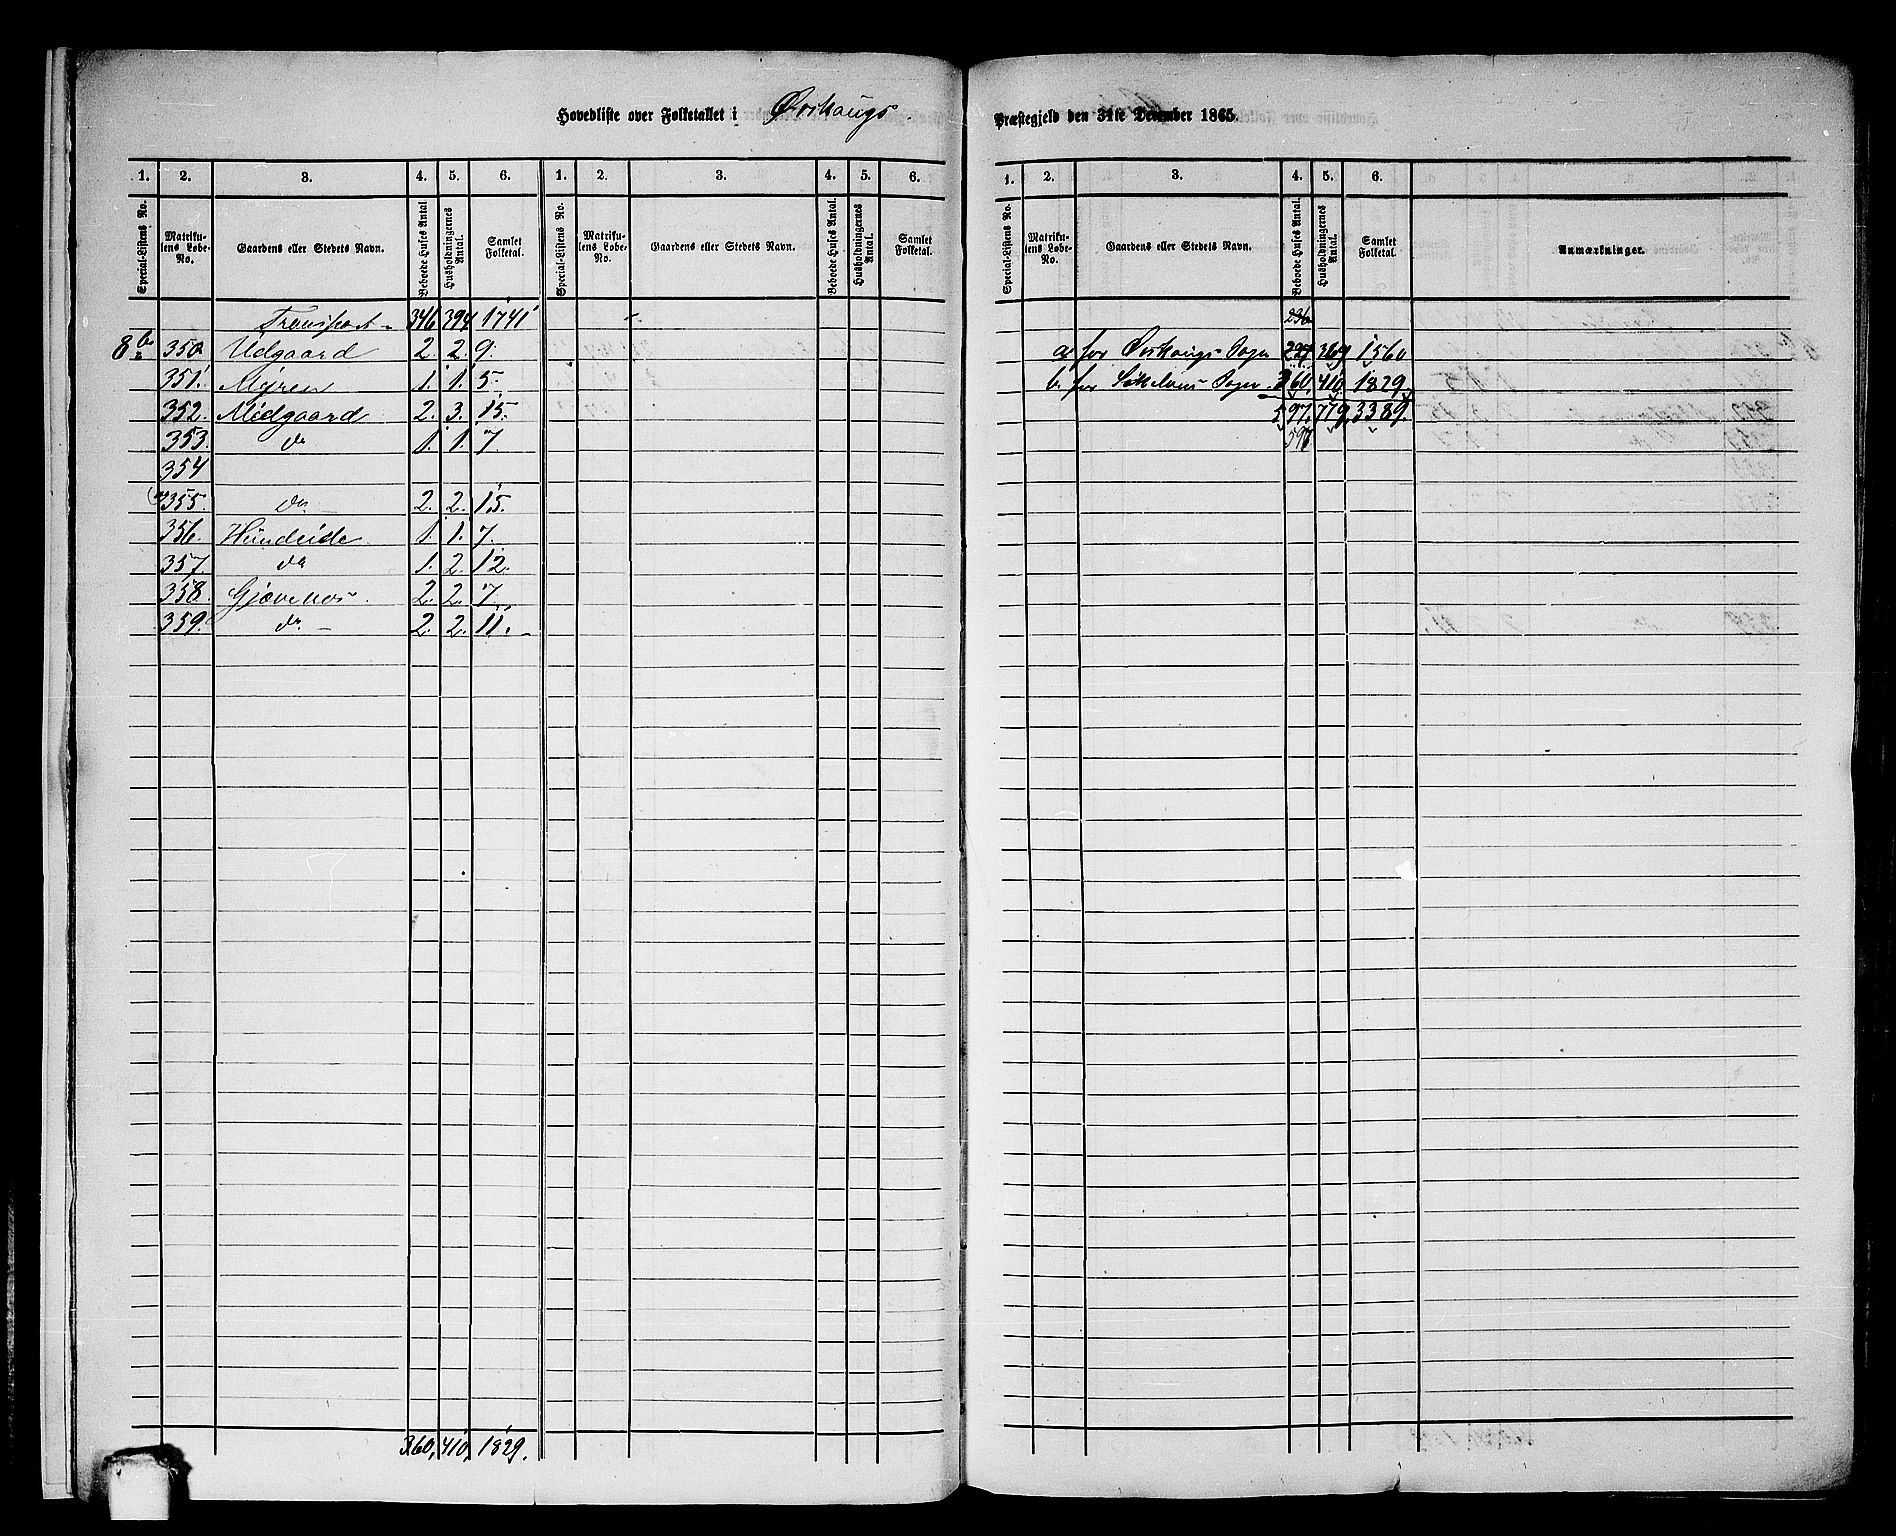 Hovedliste over Folketallet i Ørskougs
Præstegjeld den 31te December 1865.
1. 2. 3. 4. 5. 6. 1. 2. 3. 4. 5. 6.
Special-Listens No. Matrikulens Løbe-No. Gaardens eller Stedets Navn. Beboede Huses Antal. Husholdningernes Antal. Samlet Folketal. Special-Listens No. Matrikulens Løbe-No. Gaardens eller Stedets Navn. Beboede Huses Antal. Husholdningernes Antal. Samlet Folketal.
Transport 346 394 1741
8b 350 Udgaard 2. 2. 9.
351. Myren 1. 1. 5.
352. Midgaard 2. 3. 15.
353. do 1. 1. 7.
354
355. do 2. 2. 15.
356. Hundeide 1. 1. 7.
357. do 1. 2. 12.
358. Gjævenes 2. 2. 7.
359. do 2. 2. 11.
360, 410, 1829.
1. 2. 3. 4. 5. 6.
Special-Listens No. Matrikulens Løbe-No. Gaardens eller Stedets Navn. Beboede Huses Antal. Husholdningernes Antal. Samlet Folketal. Anmærkninger.
236
a for Ørskougs Sogn 369 1560
b. for Sogn 360, 410 1829.
597. 779. 3389.
597